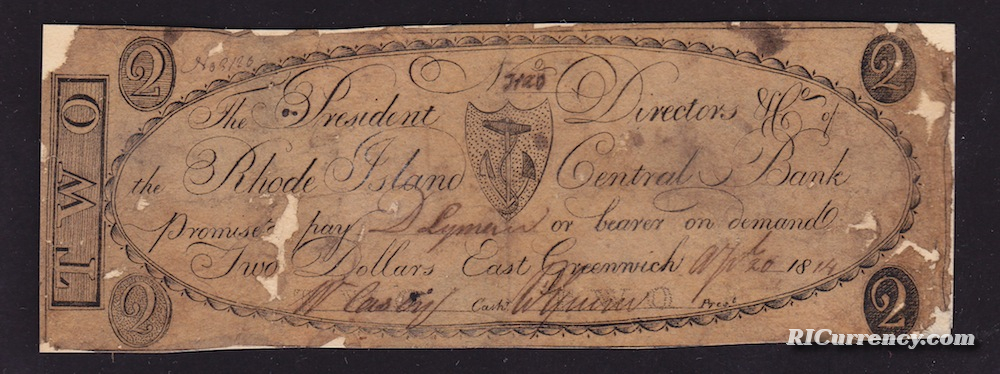 2
2
TWO
No
The President Directors & Co of
the Rhode Island Central Bank
promise to pay D Lyman or bearer on demand
Two Dollars East Greenwich 1814
Cashr Prest
2
2
RICurrency.com